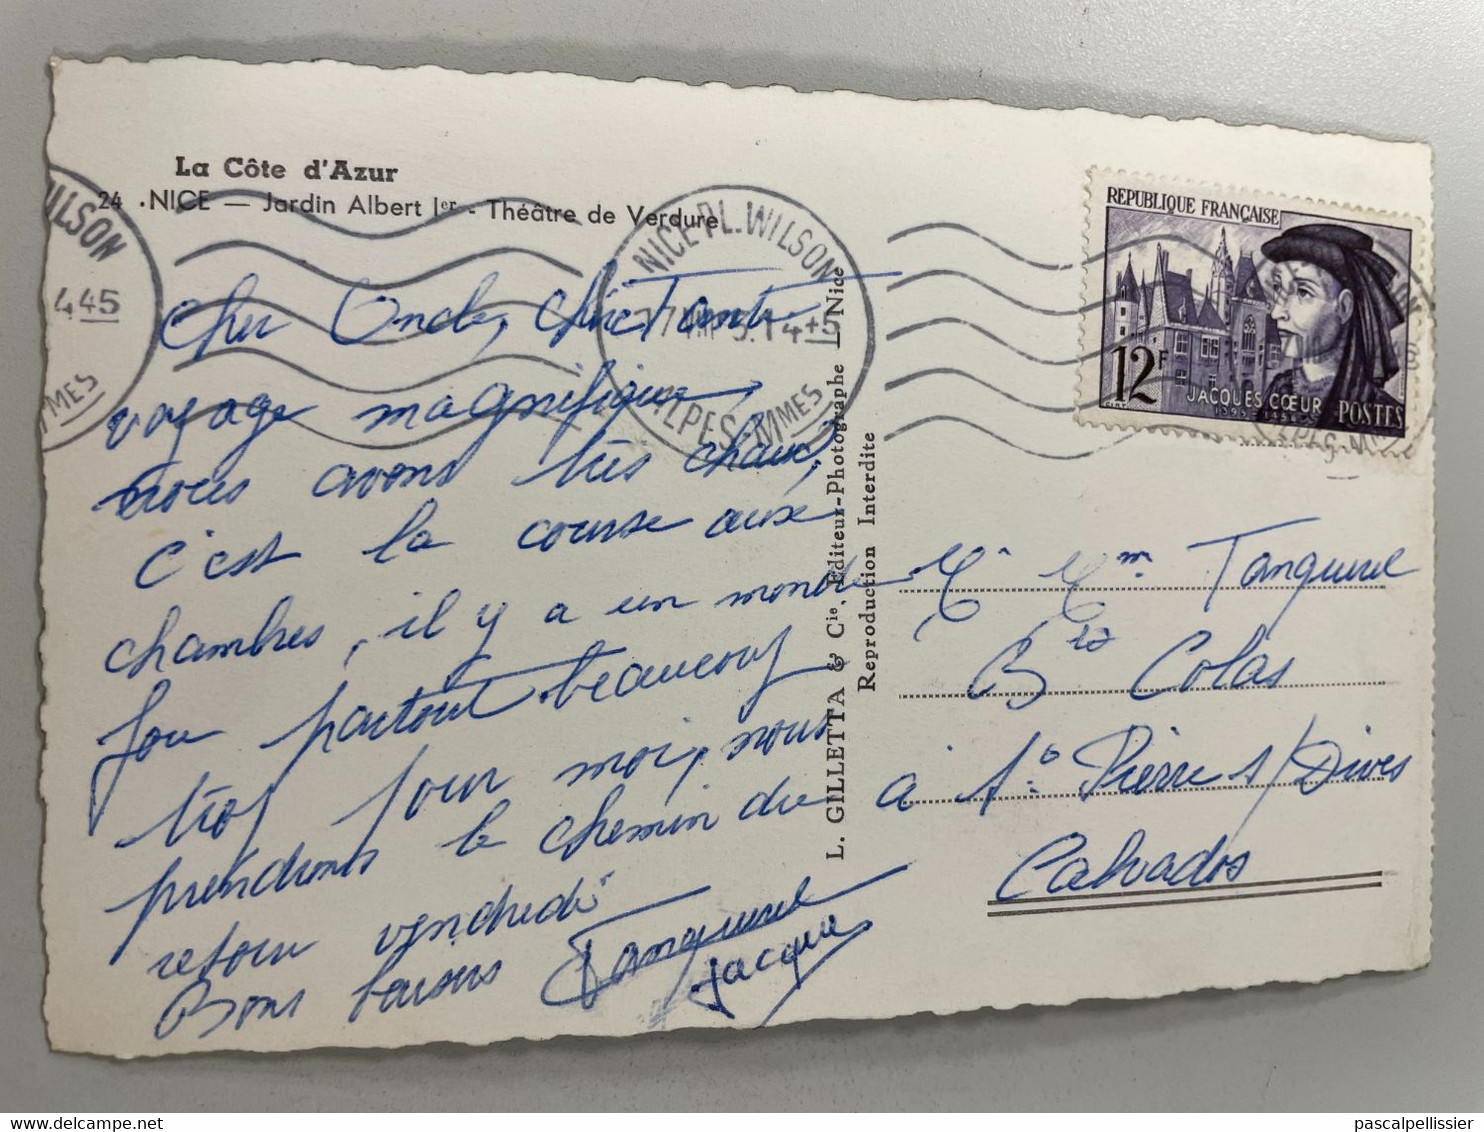 La Côte d'Azur
24 . NICE — Jardin Albert Ier - Théâtre de Verdure
WILSON
445
MMES
NICE-PL. WILSON
ALPES-MMES
REPUBLIQUE FRANÇAISE
12F
JACQUES CŒUR
1395-1456
POSTES
Cher Oncle, chère Tante
voyage magnifique,
nous avons très chaud,
c'est la course aux
chambres, il y a un monde
fou partout beaucoup
trop pour moi, nous
prendrons le chemin du
retour vendredi
Bons baisers Tanquerel
Jacques
L. GILLETTA & Cie, Editeur-Photographe — Nice
Reproduction Interdite
Mr Mme Tanquerel
Bte Colas
à St Pierre s/Dives
Calvados
pascalpellissier